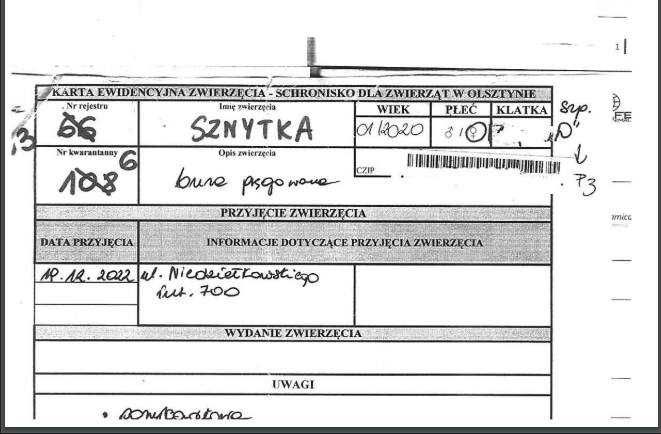 KARTA EWIDENCYJNA ZWIERZĘCIA - SCHRONISKO DLA ZWIERZĄT W OLSZTYNIE
Nr rejestru
Imię zwierzęcia
WIEK
PŁEĆ
KLATKA
Szp.
SZNYTKA
01/2020
"D"
Nr kwarantanny
6
Opis zwierzęcia
bura pręgowana
CZIP
P3
PRZYJĘCIE ZWIERZĘCIA
DATA PRZYJĘCIA
INFORMACJE DOTYCZĄCE PRZYJĘCIA ZWIERZĘCIA
19.12.2022
ul. Niedziałkowskiego
int. 700
WYDANIE ZWIERZĘCIA
UWAGI